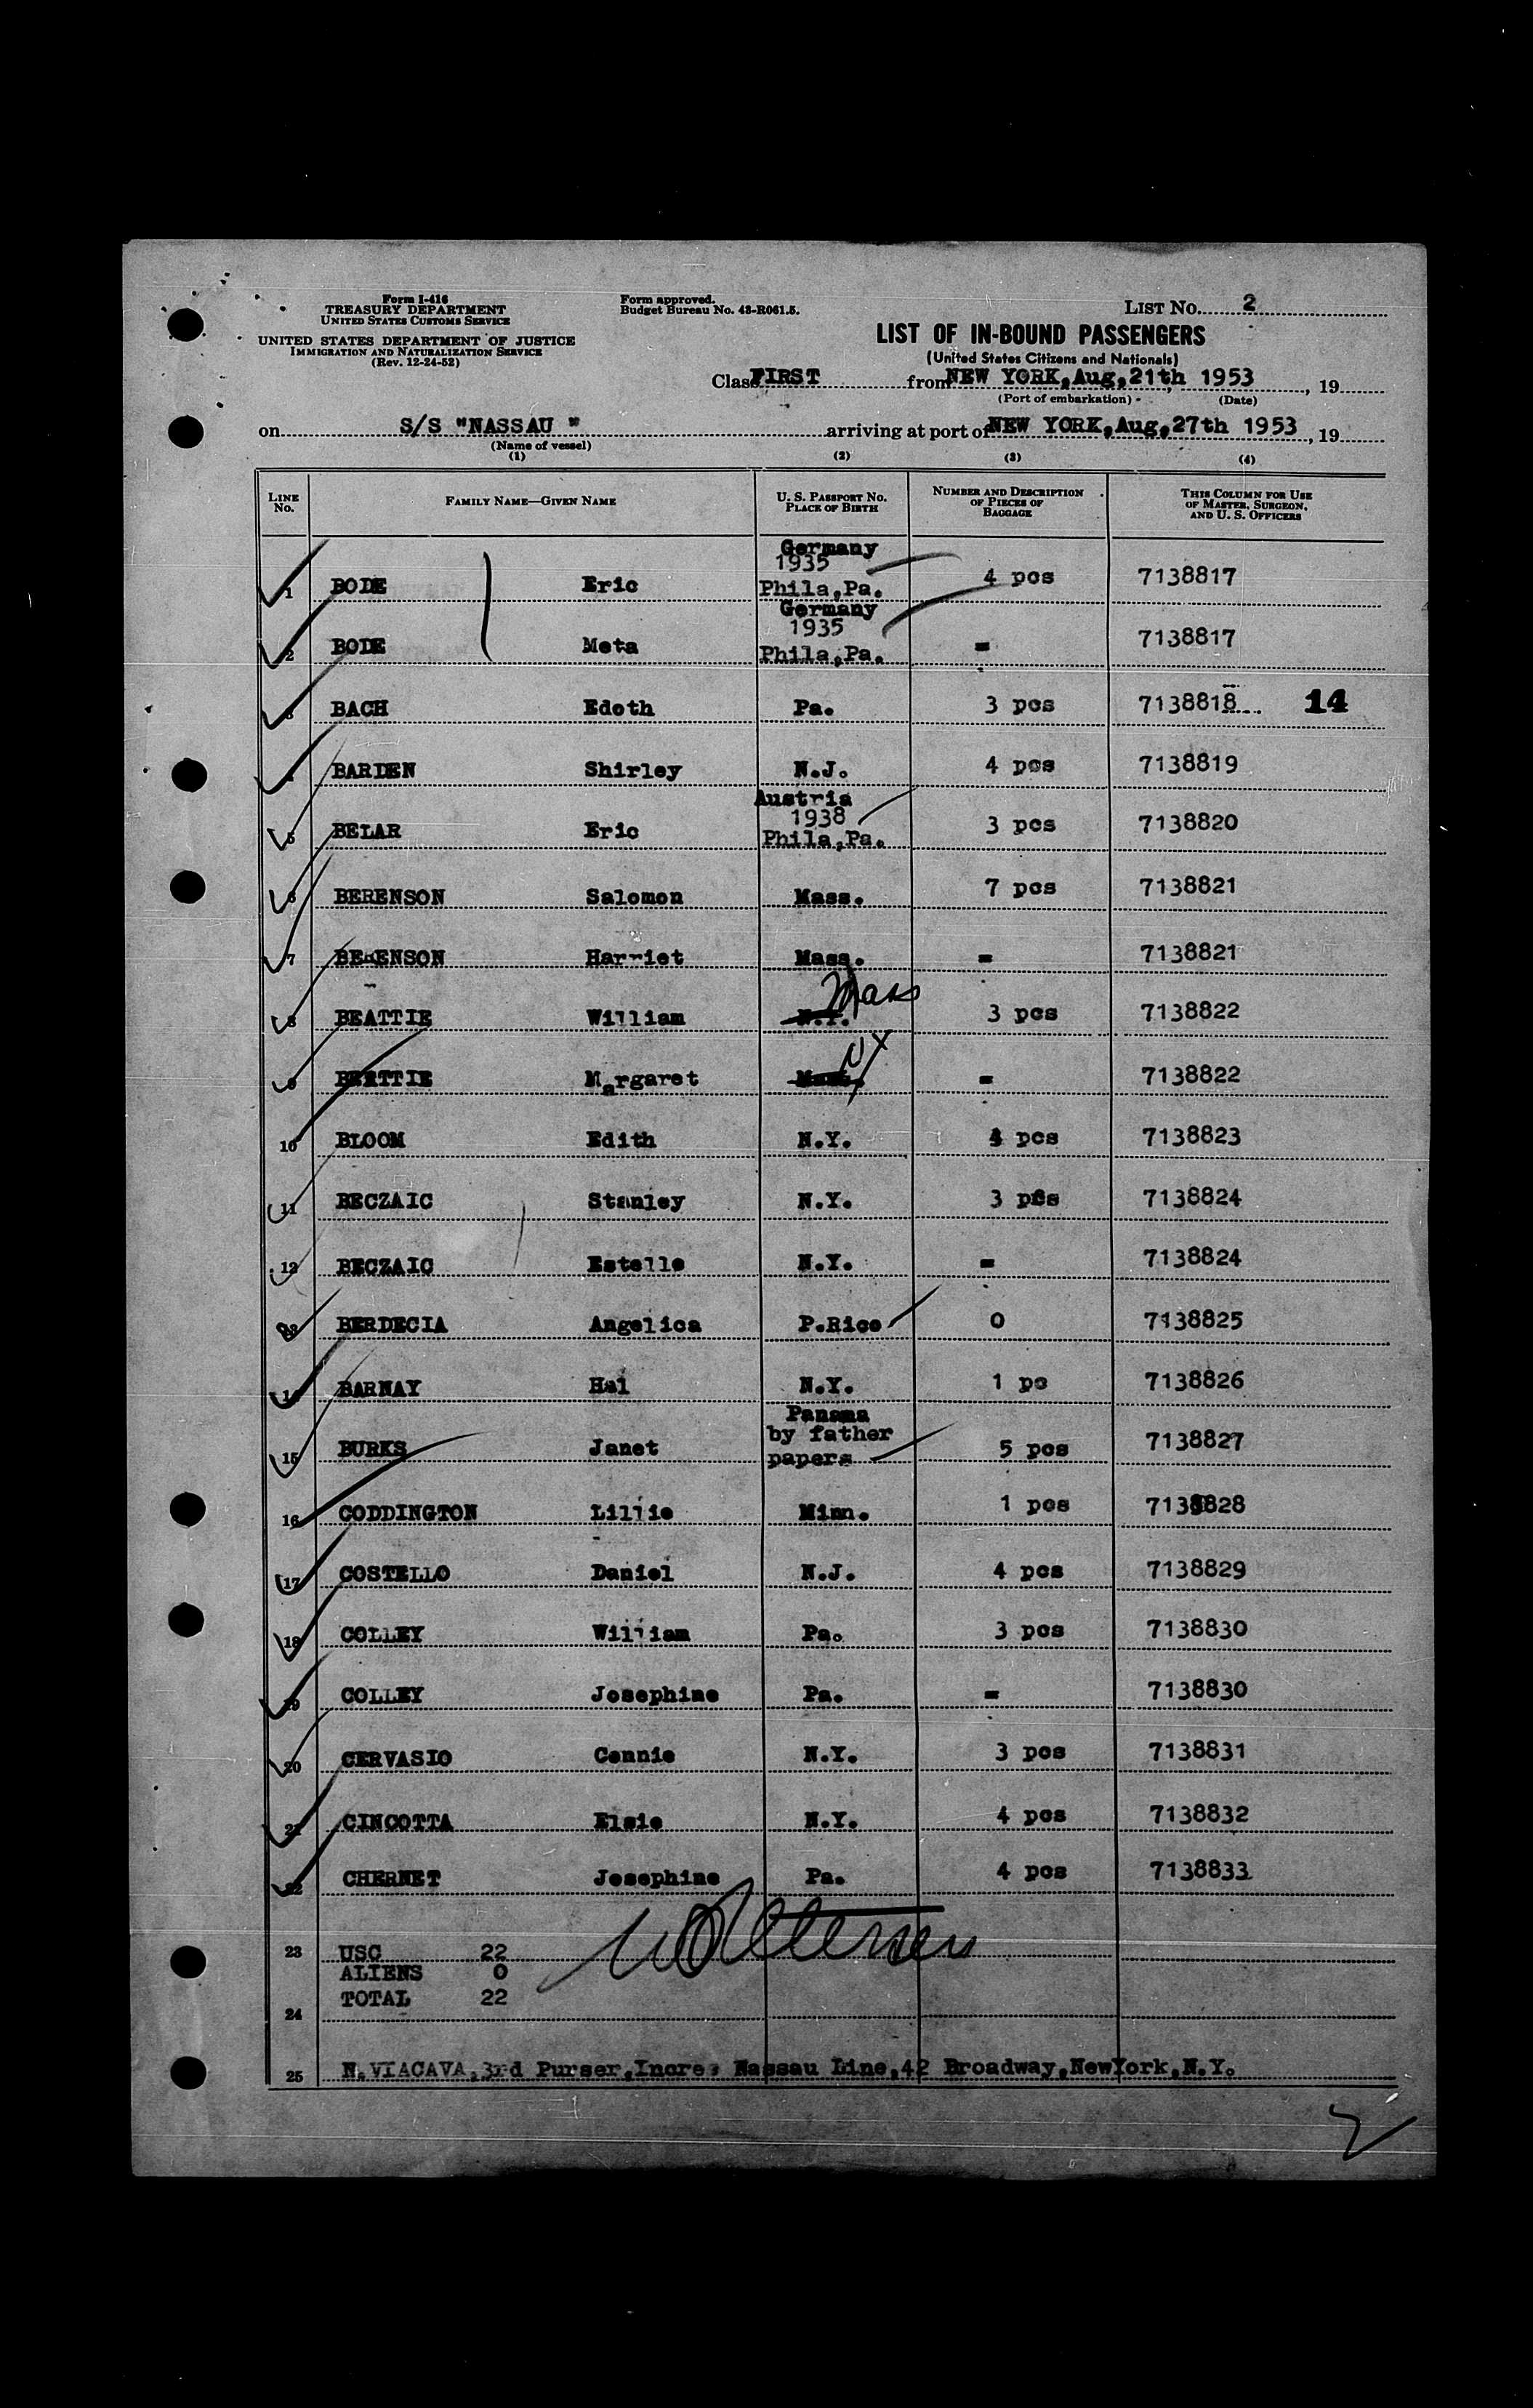 Form I-416
TREASURY DEPARTMENT
UNITED STATES CUSTOMS SERVICE
UNITED STATES DEPARTMENT OF JUSTICE
IMMIGRATION AND NATURALIZATION SERVICE
(Rev. 12-24-52)
Form approved.
Budget Bureau No. 43-R061.5.
LIST No. 2
LIST OF IN-BOUND PASSENGERS
(United States Citizens and Nationals)
Class FIRST from NEW YORK, Aug, 21th 1953, 19
(Port of embarkation) (Date)
on S/S "NASSAU " arriving at port of NEW YORK, Aug, 27th 1953, 19
(Name of vessel)
(1) (2) (3) (4)
LINE No. FAMILY NAME—GIVEN NAME U. S. PASSPORT NO. PLACE OF BIRTH NUMBER AND DESCRIPTION OF PIECES OF BAGGAGE THIS COLUMN FOR USE OF MASTER, SURGEON, AND U. S. OFFICERS
Germany
1935
1 BODE Eric Phila,Pa. 4 pcs 7138817
Germany
1935
2 BODE Meta Phila,Pa. = 7138817
3 BACH Edoth Pa. 3 pcs 7138818 14
4 BARDEN Shirley N.J. 4 pcs 7138819
Austria
1938
5 BELAR Eric Phila,Pa. 3 pcs 7138820
6 BERENSON Salomon Mass. 7 pcs 7138821
7 BERENSON Harriet Mass. = 7138821
8 BEATTIE William N.Y. Mass 3 pcs 7138822
9 BEATTIE Margaret Mass. NY = 7138822
10 BLOOM Edith N.Y. 4 pcs 7138823
11 BECZAIC Stanley N.Y. 3 pcs 7138824
12 BECZAIC Estelle N.Y. = 7138824
13 BERDECIA Angelica P.Rico 0 7138825
14 BARNAY Hal N.Y. 1 pc 7138826
Panama
by father
15 BURKS Janet papers 5 pcs 7138827
16 CODDINGTON Lillie Minn. 1 pcs 7138828
17 COSTELLO Daniel N.J. 4 pcs 7138829
18 COLLEY William Pa. 3 pcs 7138830
19 COLLEY Josephine Pa. = 7138830
20 CERVASIO Connie N.Y. 3 pcs 7138831
21 CINCOTTA Elsie N.Y. 4 pcs 7138832
22 CHERNET Josephine Pa. 4 pcs 7138833
23 USC 22
ALIENS 0
TOTAL 22
24
25 N.VIACAVA,3rd Purser,Incres Nassau Line,42 Broadway,NewYork,N.Y.
2